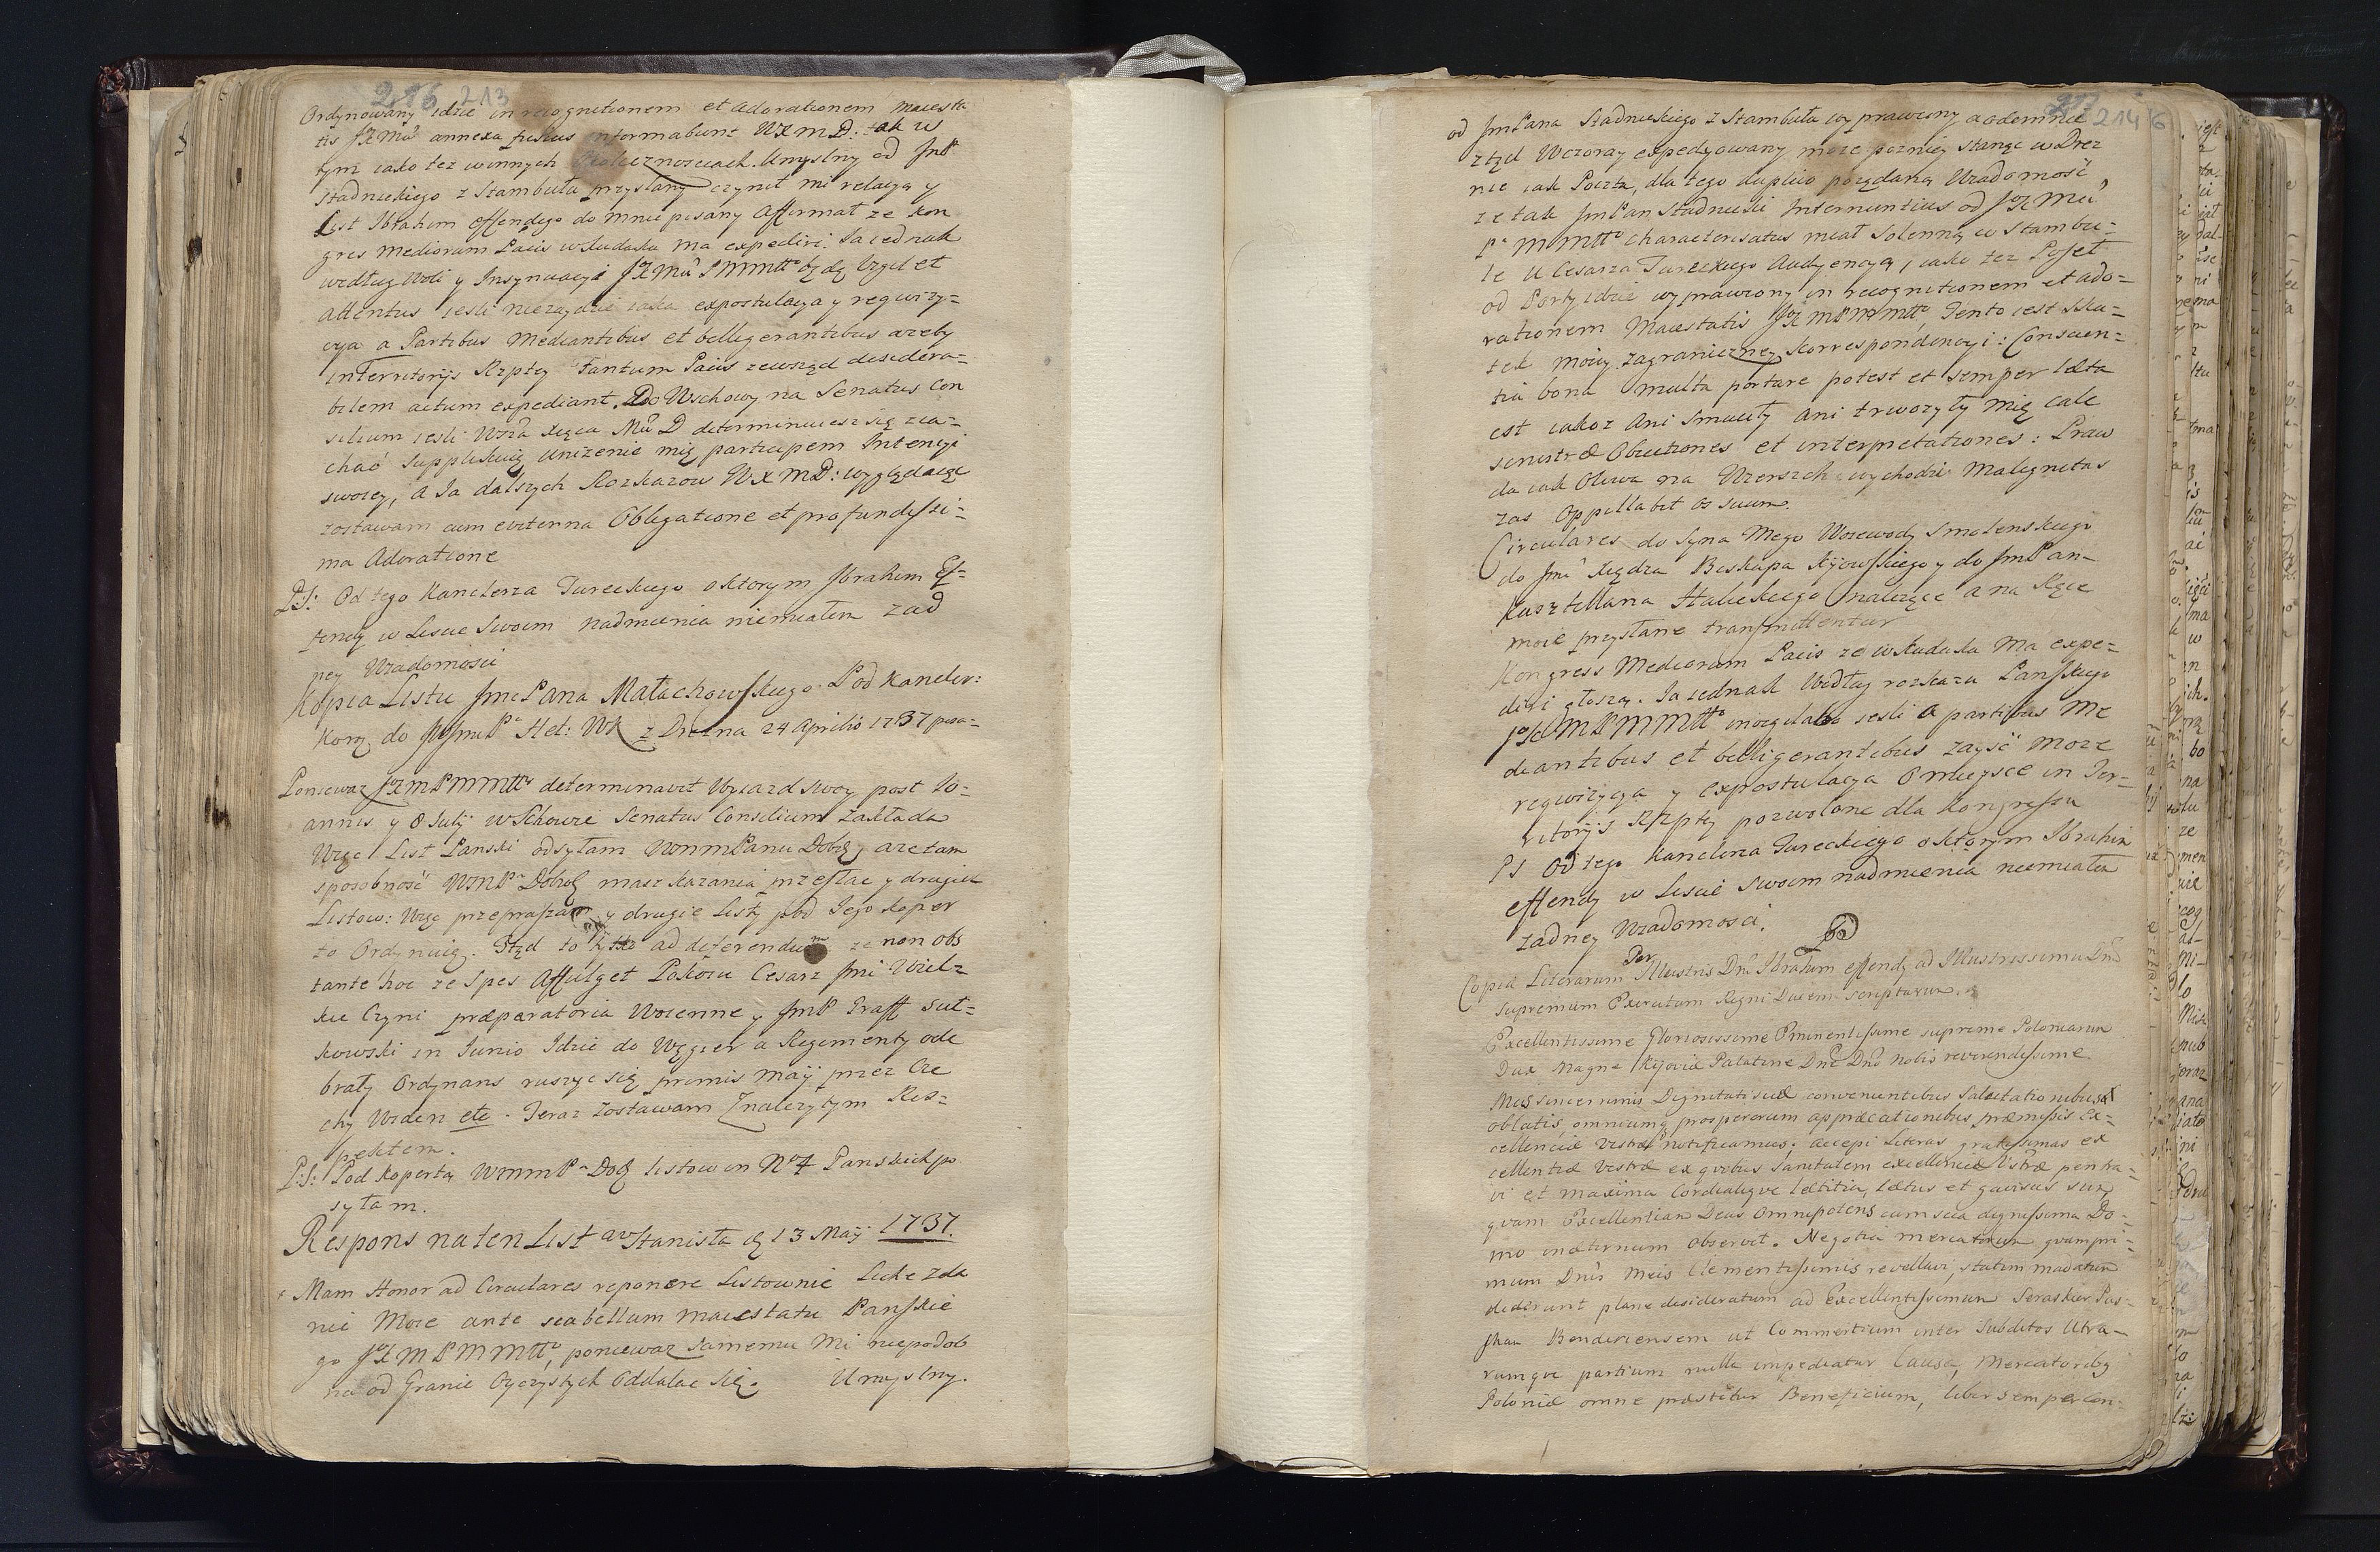 216 213
Ordynowany idzie in recognitionem et adorationem maiesta
tis JKMci annexa fusius informabunt WXMD: tak w
tym iako też w innych Okolicznosciach. Umyslny od JmP
Stadnickiego z Stambułu przysłany czynił mi relacyą y
List Ibrahim effendego do mnie pisany affirmat ze kon
gres mediorum Pacis w Sudaku ma expediri. Ia iednak
według Woli y Insynuacyi JKMci PMMtto będę Vigil et
attentus iesli niezaydzie iaka expostulacya y regwizy=
cya a Partibus Mediantibus et belligerantibus azeby
in Territorijs Rzptey Tantum Pacis zewsząd desidera=
bilem actum expediant. Do Wschowy na Senatus Con
silium iesli Wsza Xięca Mć D determinuiesz się zia=
chać supplikuię unizenie mię participem Intencyi
swoiey, a Ia dalszych Rozkazow WXMD: wyglądaiąc
zostawam cum eviterna Obligatione et profundissi=
ma Adoratione
PS: Od tego Kanclerza Tureckiego o ktorym Ibrahim Ef=
fendy w Liscie Swoim nadmienia niemiałem zad
ney Wiadomosci
Kopia Listu Jmci Pana Małachowskiego Pod Kancler:
Kory do JJmci Pa Het: WK z Drezna 24 Aprilis 1737 pisa=
Poniewaz JKMPMMtto determinavit Wyiazd swoy post Io=
annis y 8 Julij w Schowie Senatus Consilium zakłada
Więc List Panski odsyłam WMMPanu Dobrey, aze tam
sposobność WMPa Dobrey masz kazania przesłac y drugich
Listow: Więc przepraszam y drugie Listy pod Iego koper
to Ordynuię. Ztąd to tylko ad deferendum ze non obs
tante hoc ze Spes Affulget Pokoiu Cesarz Jmć Wielz
kie Czyni præparatoria Woienne y JmP Graff Suł=
kowski in Iunio Idzie do Węgier a Regimenty ode
brały Ordynans ruszyc się primis Maij przez Cze
chy Widen etc. Teraz zostawam Z nalezytym Res=
pektem.
P:S: Pod koperta WMMPa Dob listow in No 7 Panskich po
syłam.
Respons na ten List av Stanisła dę 13 Maij 1737.
Mam Honor ad Circulares reponere Listownie Lickie zda
nie Moie ante scabellum Maiestatu Panskie
go JKMPMMtto, poniewaz samemu Mi niepodob
na od Granic Oyczystych Oddalac się. Umyslny.
217 214 6
od JmPana Stadnickiego z Stambułu wyprawiony a odemnie
ztąd Wczoray expedyowany moze pozniey stange w Drez
nie iak Poczta, dla tego duplico poządaną Wiadomość
ze tak JmPan Stadnicki Internuntius od JKMci
Pa MMtto characterisatus miał Solenną w Stambu=
le u Cesarza Tureckiego Audyencyą, iako tez Poseł
od Porty idzie wyprawiony in recognitionem et ado=
rationem Maiestatis JKMPMMtto, Tento iest sku=
tek moiey zagraniczney korrespondencyi: Conscien=
tia bona multa portare potest et semper læta
est iakoz Ani smuciły Ani trwozyły mię całe
sinistræ Obiectiones et interpretationes: Praw
da iak Oliwa na Wierszch wychodzi Malignitas
zas Oppillabit os suum.
Circulares do Syna Mego Woiewody Smolenskiego
do Jmć Xiędza Biskupa Kyiowskiego y do JmPan
Kasztellana Halickiego należące a na Ręce
moie przysłane transmittentur
Kongress Mediorum Pacis ze w Sudaku Ma expe=
diri głoszą. Ia iednak Według rozkazu Panskiego
JKMPMMtto invigilabo iesli a partibus Me
diantibus et belligerantibus zayść moze
reqwizycya y expostulacya O mieysce in Ter=
ritorijs Rzptey pozwolone dla Kongressu
PS Od tego Kanclerza Tureckiego o ktorym Ibrahim
effendy w Liscie swoim nadmienia niemiałem
zadney Wiadomosci.
Copia Literarum Per Illustris Dni Ibrahim effendy ad Illustrissimu Dnu
Supremum Exercituum Regni Ducem scriptarum.
Excellentissime Gloriosissime Eminentissime supreme Poloniarum
Dux Magne Kijoviæ Palatine Dne Dno Nobis reverendissime
Mos sincerrimis Dignitatis suæ convenientibus Salutationibus
oblatis, omniumq prosperorum appræcationibus præmissis Ex=
cellenciæ Vestræ notificamus; accepi Literas gratissimas ex
cellentiæ Vestræ ex qvibus sanitatem excellenciæ Vstræ penetra=
vi et maxima Cordialiqve lætitia, lætus et gavisus sum
qvam Excellentiam Deus Omnipotens cum sua dignissima Do=
mo inæternum observet. Negotia mercatorum qvampri=
mum Dnis Meis Clementissimis revellavi, statim madatum
dederunt plane desideratum ad Excellentissimum Seraskier Pas=
shan Benderiensem ut Commertium inter Subditos Utra=
rumqve partium nulla impediatur Causa, Mercatoriby
Poloniæ omne præstetur Beneficium, liber semper con=